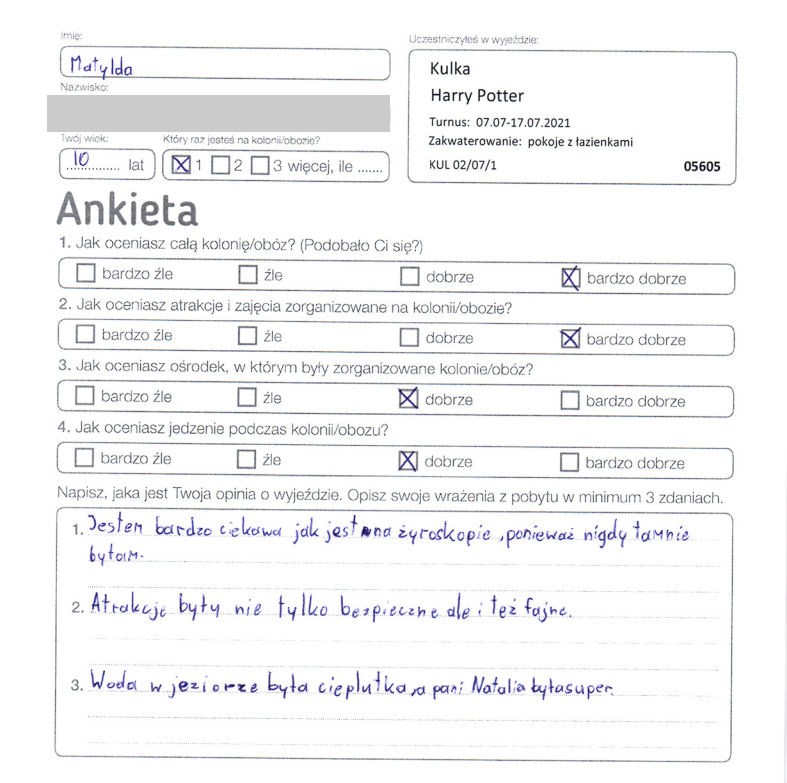 Imię:
Uczestniczyłeś w wyjeździe:
Matylda
Kulka
Nazwisko:
Harry Potter
Turnus: 07.07-17.07.2021
Twój wiek:
Który raz jesteś na kolonii/obozie?
Zakwaterowanie: pokoje z łazienkami
10 lat
1 2 3 więcej, ile .......
KUL 02/07/1 05605
Ankieta
1. Jak oceniasz całą kolonię/obóz? (Podobało Ci się?)
bardzo źle źle dobrze bardzo dobrze
2. Jak oceniasz atrakcje i zajęcia zorganizowane na kolonii/obozie?
bardzo źle źle dobrze bardzo dobrze
3. Jak oceniasz ośrodek, w którym były zorganizowane kolonie/obóz?
bardzo źle źle dobrze bardzo dobrze
4. Jak oceniasz jedzenie podczas kolonii/obozu?
bardzo źle źle dobrze bardzo dobrze
Napisz, jaka jest Twoja opinia o wyjeździe. Opisz swoje wrażenia z pobytu w minimum 3 zdaniach.
1. Jestem bardzo ciekawa jak jest na żyroskopie, ponieważ nigdy tam nie
byłam.
2. Atrakcje były nie tylko bezpieczne ale i też fajne.
3. Woda w jeziorze była cieplutka, a pani Natalia była super.